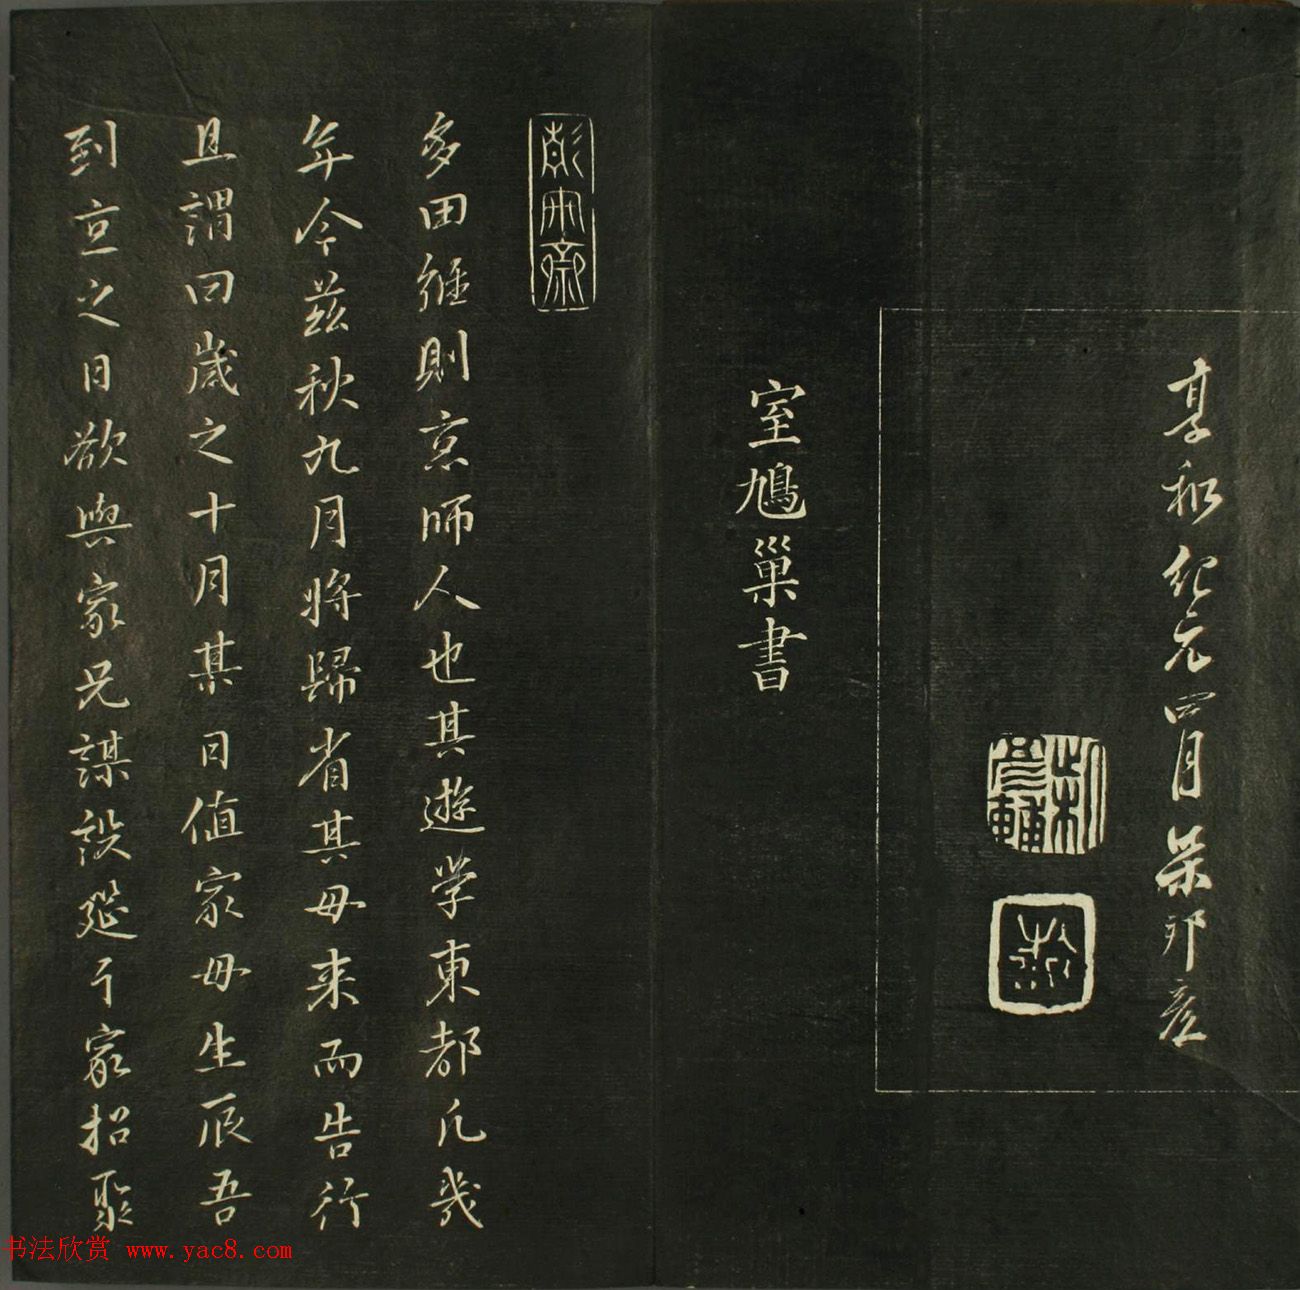 享和紀元四月柴邦彦
室鳩巢書
多田維則京師人也其遊学東都凡幾
年今茲秋九月將歸省其母来而告行
且謂曰歲之十月某日值家母生辰吾
到京之日欲與家兄謀設筵于家招聚
书法欣赏 www.yac8.com